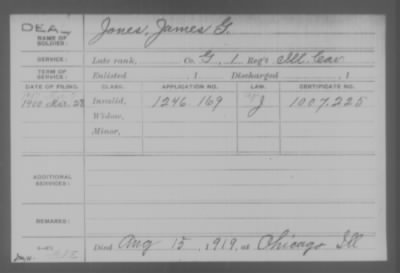 DEA
NAME OF SOLDIER: Jones, James G.
SERVICE: Late rank, Co. G, 1 Reg't Ill. Cav
TERM OF SERVICE: Enlisted , 1 Discharged , 1
DATE OF FILING. CLASS. APPLICATION NO. LAW. CERTIFICATE NO.
1900 Mar. 28 Invalid, 1246.169 J 1007.225
Widow,
Minor,
ADDITIONAL SERVICES:
REMARKS:
Died Aug 15, 1919, at Chicago Ill